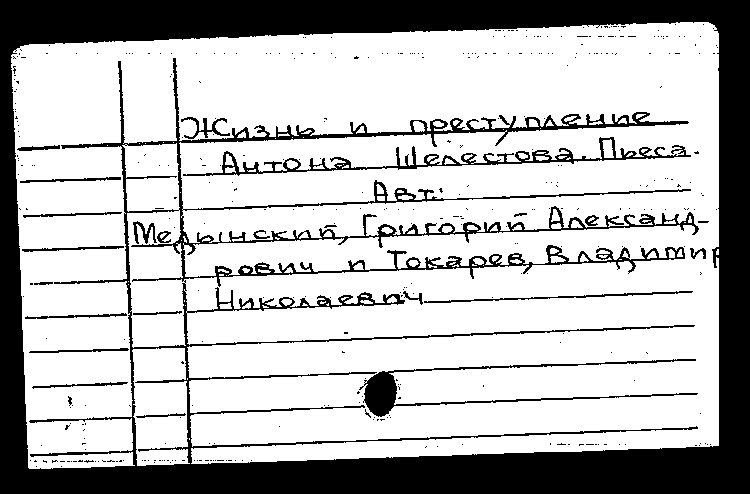 Жизнь и преступление
Антона Шелестова. Пьеса.
Авт.:
Медынский, Григорий Александ-
рович и Токарев, Владимир
Николаевич